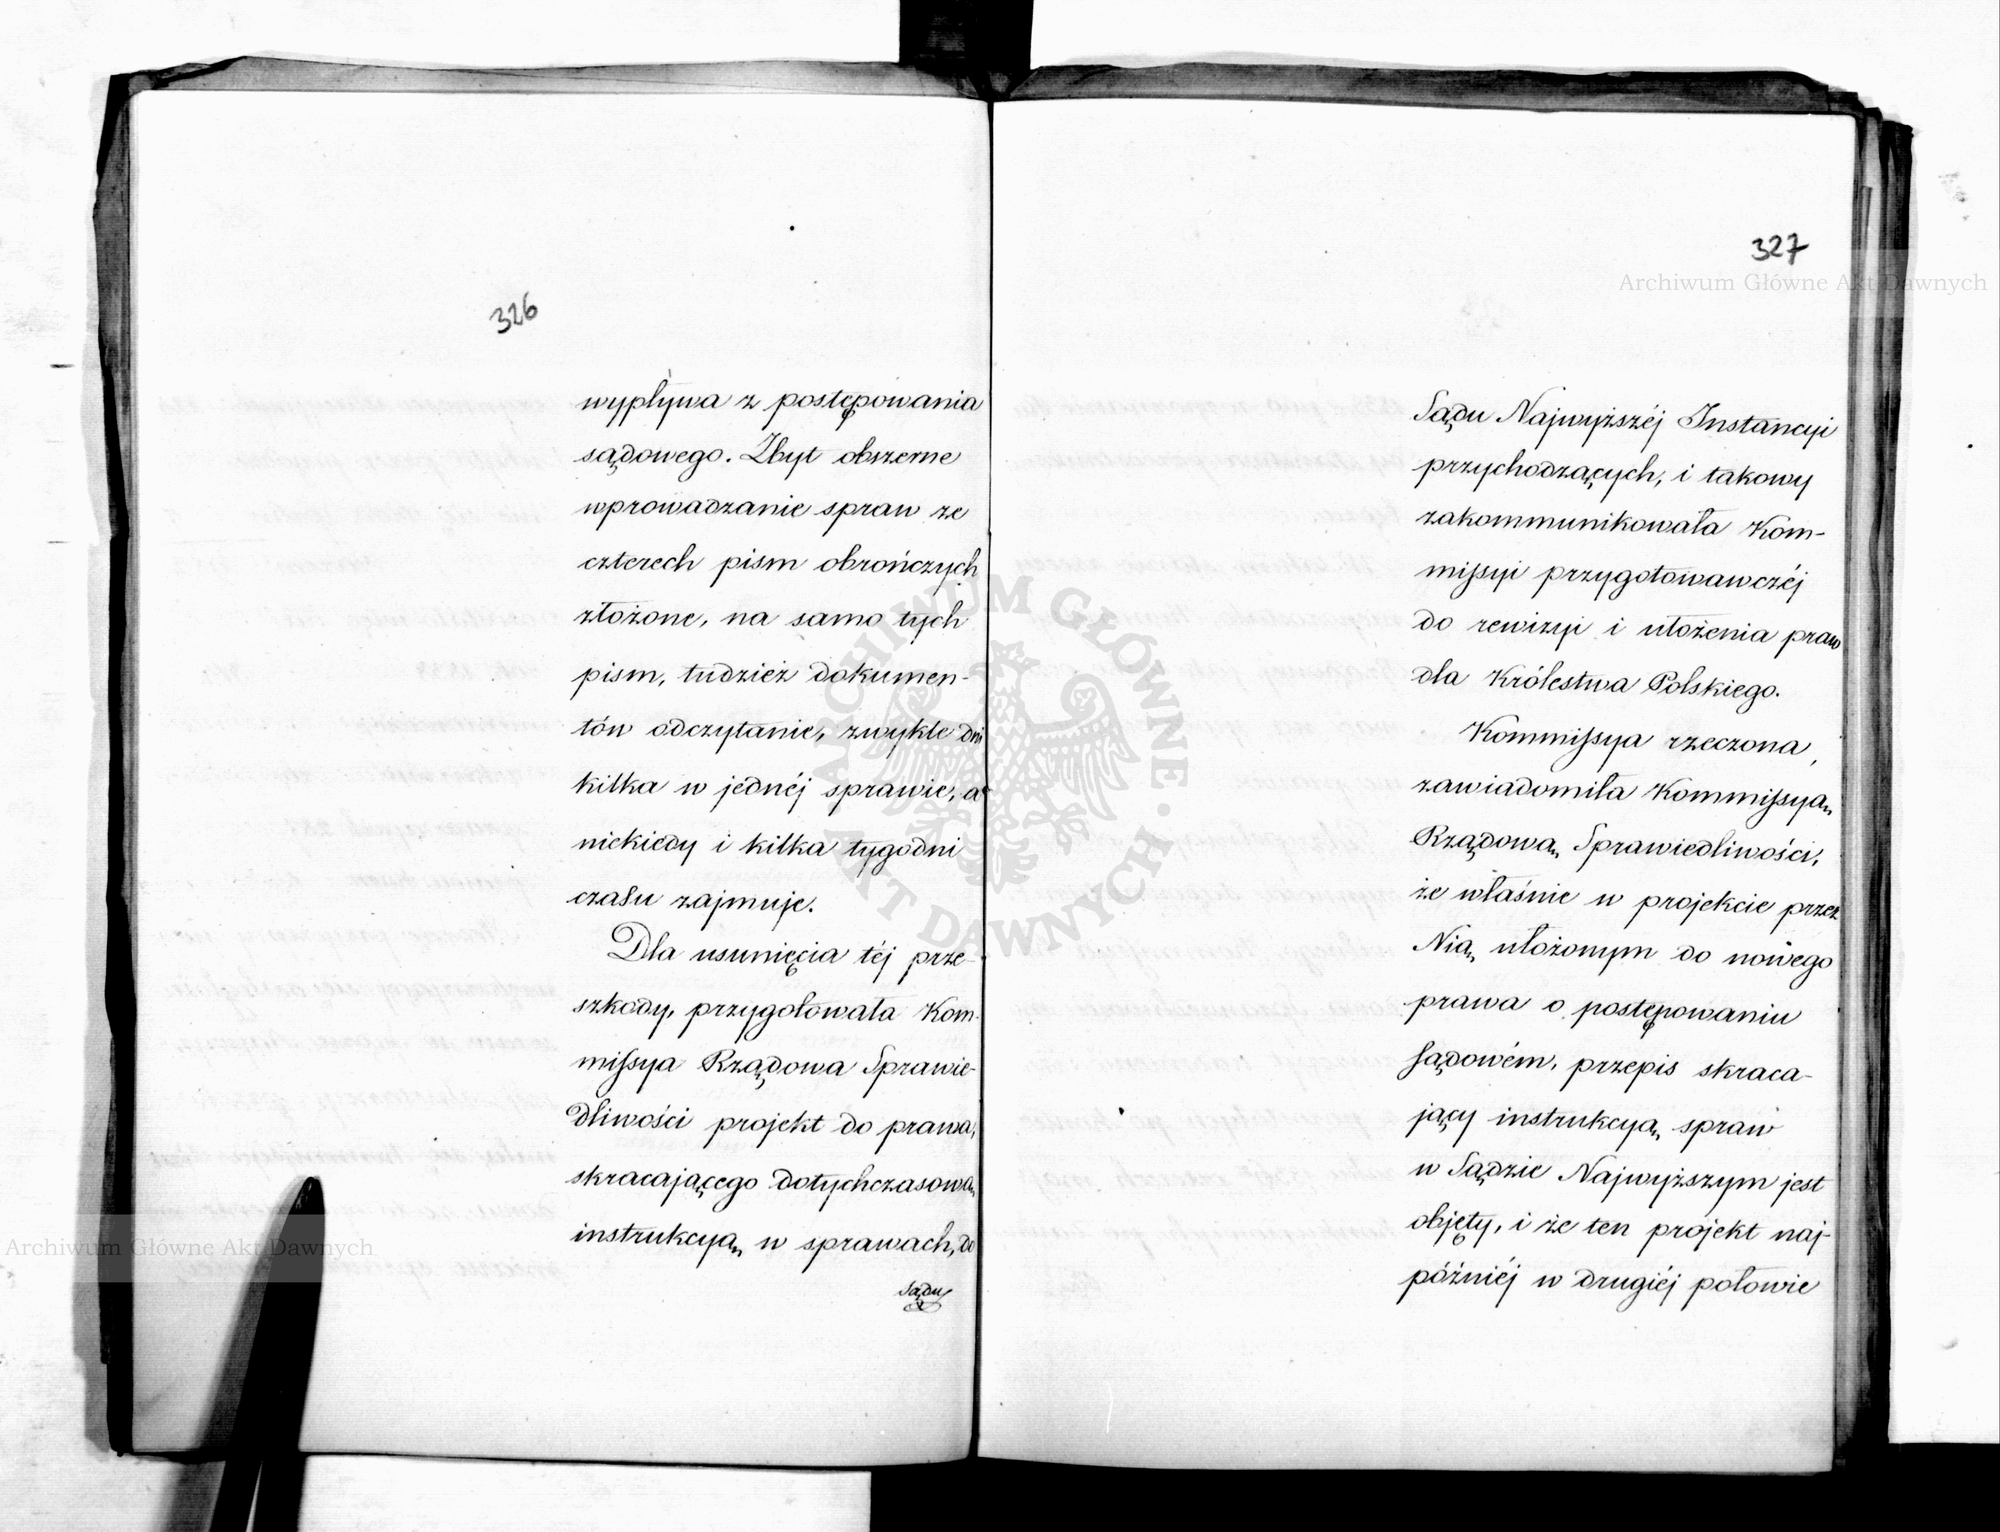 326
wypływa z postępowania
sądowego. Zbyt obszerne
wprowadzanie spraw ze
czterech pism obrończych
złożone, na samo tych
pism, tudzież dokumen-
tów odczytanie, zwykle dni
kilka w jednéj sprawie, a
niekiedy i kilka tygodni
czasu zajmuje.
Dla usunięcia téj prze-
szkody, przygotowała Kom-
missya Rządowa Sprawie-
dliwości projekt do prawa,
skracającego dotychczasową
instrukcyą w sprawach, do
Sądu
327
Sądu Najwyższéj Instancyi
przychodzących, i takowy
zakommunikowała Kom-
missyi przygotowawczéj
do rewizyi i ułożenia praw
dla Królestwa Polskiego.
Kommissya rzeczona,
zawiadomiła Kommissyą
Rządową Sprawiedliwości,
że właśnie w projekcie przez
Nią ułożonym do nowego
prawa o postępowaniu
sądowém, przepis skraca-
jący instrukcyą spraw
w Sądzie Najwyższym jest
objęty, i że ten projekt naj-
późniéj w drugiéj połowie
Archiwum Główne Akt Dawnych
Archiwum Główne Akt Dawnych
ARCHIWUM GŁÓWNE · AKT DAWNYCH ·